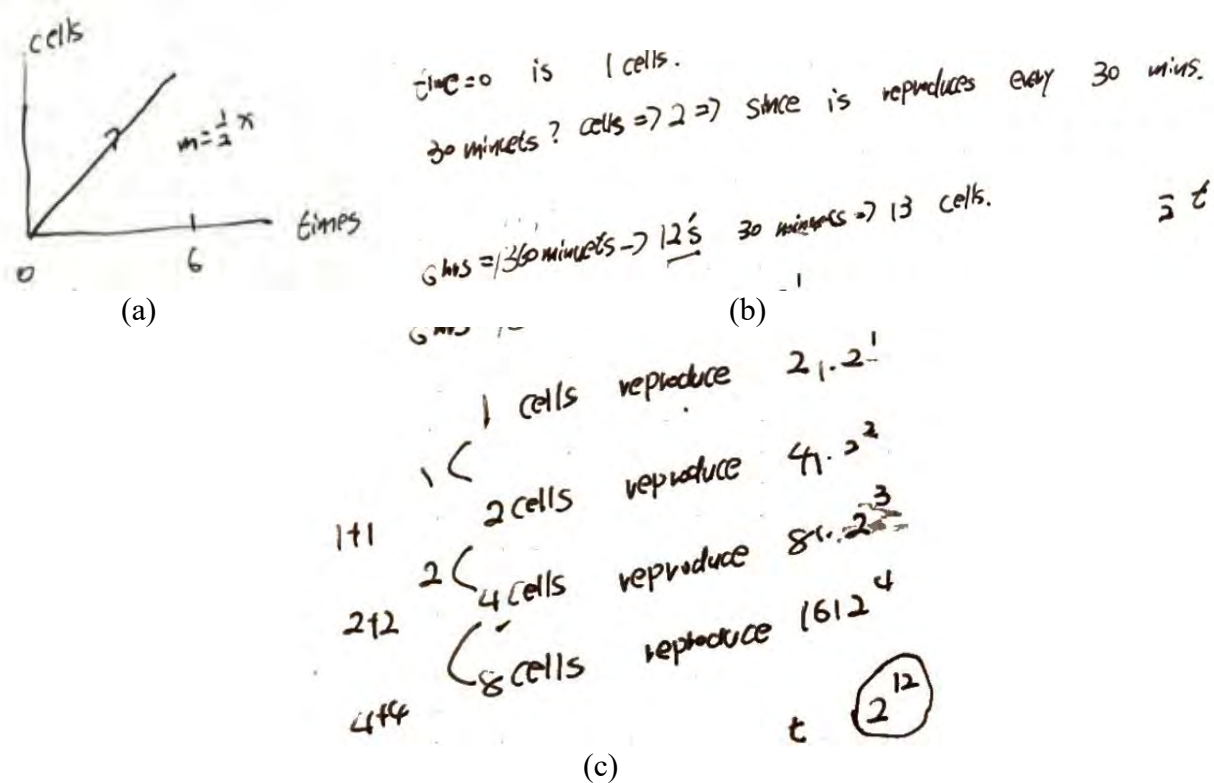 cells
m = 1/2 x
times
0
6
(a)
time=0 is 1 cells.
30 minuets? cells => 2 => since is reproduces every 30 mins.
6 hrs = 360 minuets -> 12's 30 minuets => 13 cells.
t
(b)
6 hrs
1 cells reproduce 2, . 2^1
1
2 cells reproduce 4, . 2^2
1+1
2
4 cells reproduce 8, . 2^3
2+2
8 cells reproduce 16, 2^4
4+4
t 2^12
(c)